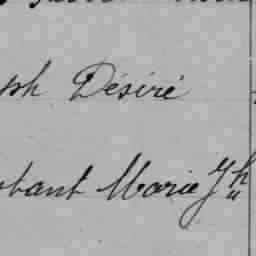 ph Désiré
obant Marie Jh